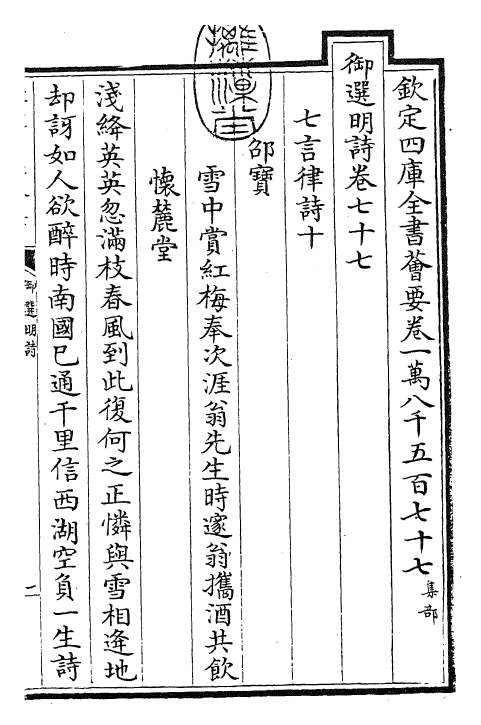 欽定四庫全書薈要卷一萬八千五百七十七 集部
御選明詩卷七十七
七言律詩十
邵寶
雪中賞紅梅奉次涯翁先生時邃翁攜酒共飲
懷麓堂
淺絳英英忽滿枝春風到此復何之正憐與雪相逢地
却訝如人欲醉時南國已通千里信西湖空負一生詩
御選明詩
二